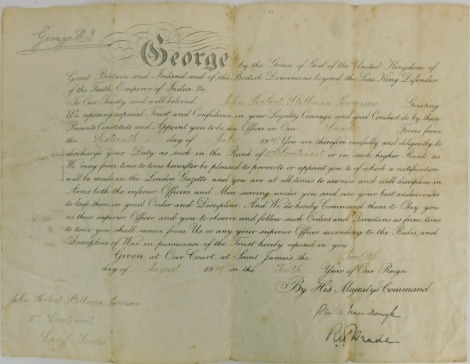 George R.I.
George by the Grace of God of the United Kingdom of
Great Britain and Ireland and of the British Dominions beyond the Seas, King, Defender
of the Faith, Emperor of India, &c.
To Our Trusty and well beloved John Robert Stillman Greeting
We reposing especial Trust and Confidence in your Loyalty, Courage, and good Conduct, do by these
Presents Constitute and Appoint you to be an Officer in Our Land Forces from
the day of 19 You are therefore carefully and diligently to
discharge your Duty as such in the Rank of 2nd Lieutenant or in such higher Rank as
We may from time to time hereafter be pleased to promote or appoint you to, of which a notification
will be made in the London Gazette, and you are at all times to exercise and well discipline in
Arms both the inferior Officers and Men serving under you and use your best endeavours
to keep them in good Order and Discipline. And We do hereby Command them to Obey you
as their superior Officer, and you to observe and follow such Orders and Directions as from time
to time you shall receive from Us, or any your superior Officer, according to the Rules and
Discipline of War, in pursuance of the Trust hereby reposed in you.
Given at Our Court, at Saint James's, the
day of August 19 in the Tenth Year of Our Reign
By His Majesty's Command
John Robert Stillman
2nd Lieutenant
Land Forces